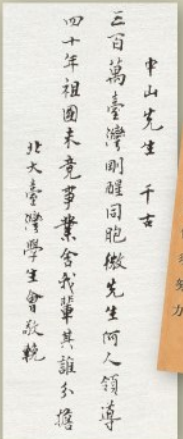 中山先生 千古
三百萬臺灣剛醒同胞微先生何人領導
四十年祖國未竟事業舍我輩其誰分擔
北大臺灣學生會敬輓
努力